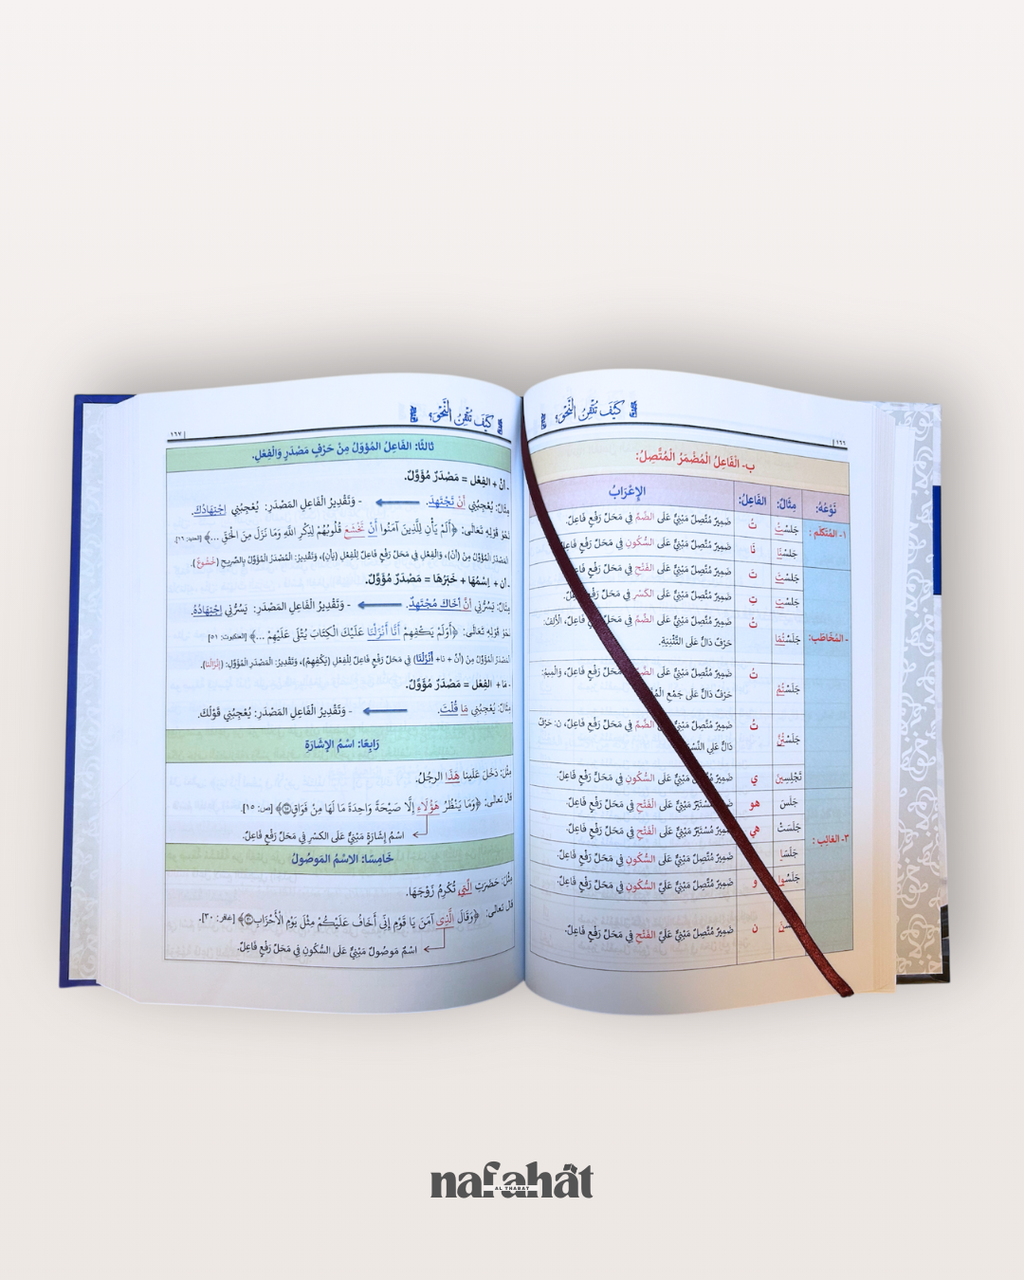 كَيْفَ تُتْقِنُ النَّحْوَ؟
١٦٦
ب- الْفَاعِلُ الْمُضْمَرُ الْمُتَّصِلُ:
نَوْعُهُ: مِثَالٌ: الفَاعِلُ: الإِعْرَابُ
١- المُتَكَلِّم : جَلَسْتُ تُ ضَمِيرٌ مُتَّصِلٌ مَبْنِيٌّ عَلَى الضَّمِّ فِي مَحَلِّ رَفْعٍ فَاعِلٌ.
جَلَسْنَا نَا ضَمِيرٌ مُتَّصِلٌ مَبْنِيٌّ عَلَى السُّكُونِ فِي مَحَلِّ رَفْعٍ فَاعِلٌ.
جَلَسْتَ تَ ضَمِيرٌ مُتَّصِلٌ مَبْنِيٌّ عَلَى الفَتْحِ فِي مَحَلِّ رَفْعٍ
جَلَسْتِ تِ ضَمِيرٌ مُتَّصِلٌ مَبْنِيٌّ عَلَى الكَسْرِ فِي مَحَلِّ رَفْعٍ
- المُخَاطَب: جَلَسْتُمَا تُ ضَمِيرٌ مُتَّصِلٌ مَبْنِيٌّ عَلَى الضَّمِّ فِي مَحَلِّ رَفْعٍ فَاعِلٌ، الْأَلِفُ:
حَرْفٌ دَالٌّ عَلَى التَّثْنِيَةِ.
جَلَسْتُمْ تُ ضَمِيرٌ مُتَّصِلٌ مَبْنِيٌّ عَلَى الضَّمِّ فِي مَحَلِّ رَفْعٍ فَاعِلٌ، وَالْمِيمُ:
حَرْفٌ دَالٌّ عَلَى جَمْعِ
جَلَسْتُنَّ تُ ضَمِيرٌ مُتَّصِلٌ مَبْنِيٌّ عَلَى الضَّمِّ فِي مَحَلِّ رَفْعٍ فَاعِلٌ، ن: حَرْفٌ
دَالٌّ عَلَى
تَجْلِسِينَ ي ضَمِيرٌ مُتَّصِلٌ مَبْنِيٌّ عَلَى السُّكُونِ فِي مَحَلِّ رَفْعٍ فَاعِلٌ.
جَلَسَ هو ضَمِيرٌ مُسْتَتِرٌ مَبْنِيٌّ عَلَى الْفَتْحِ فِي مَحَلِّ رَفْعٍ فَاعِلٌ.
٣- الغائِب : جَلَسَتْ هي ضَمِيرٌ مُسْتَتِرٌ مَبْنِيٌّ عَلَى الْفَتْحِ فِي مَحَلِّ رَفْعٍ فَاعِلٌ.
جَلَسَا ضَمِيرٌ مُتَّصِلٌ مَبْنِيٌّ عَلَى السُّكُونِ فِي مَحَلِّ رَفْعٍ فَاعِلٌ.
جَلَسُوا و ضَمِيرٌ مُتَّصِلٌ مَبْنِيٌّ عَلَى السُّكُونِ فِي مَحَلِّ رَفْعٍ فَاعِلٌ.
ن ضَمِيرٌ مُتَّصِلٌ مَبْنِيٌّ عَلَى الفَتْحِ فِي مَحَلِّ رَفْعٍ فَاعِلٌ.
كَيْفَ تُتْقِنُ النَّحْوَ؟
١٦٧
ثالثًا: الفَاعِلُ المُؤَوَّلُ مِنْ حَرْفٍ مَصْدَرٍ وَالْفِعْلِ.
. أَنْ + الفِعْل = مَصْدَرٌ مُؤَوَّلٌ.
مِثَالٌ: يُعْجِبُنِي أَنْ تَجْتَهِدَ. - وَتَقْدِيرُ الْفَاعِلِ المَصْدَرِ: يُعْجِبُنِي اجْتِهَادُكَ.
نَحْوُ قَوْلِهِ تَعَالَى: ﴿أَلَمْ يَأْنِ لِلَّذِينَ آمَنُوا أَنْ تَخْشَعَ قُلُوبُهُمْ لِذِكْرِ اللَّهِ وَمَا نَزَلَ مِنَ الْحَقِّ ...﴾ [الحديد: ١٦].
المَصْدَرُ المُؤَوَّلُ مِنْ (أَنْ)، وَالفِعْلِ فِي مَحَلِّ رَفْعٍ فَاعِلٌ لِلْفِعْلِ (يَأْنِ)، وَتَقْدِيرُ: المَصْدَرُ المُؤَوَّلُ بِالصَّرِيحِ (خُشُوعُ).
. أَن + اِسْمُهَا + خَبَرُهَا = مَصْدَرٌ مُؤَوَّلٌ.
مِثَالٌ: يَسُرُّنِي أَنَّ أَخَاكَ مُجْتَهِدٌ. - وَتَقْدِيرُ الْفَاعِلِ المَصْدَرِ: يَسُرُّنِي اجْتِهَادُهُ.
نَحْوُ قَوْلِهِ تَعَالَى: ﴿أَوَلَمْ يَكْفِهِمْ أَنَّا أَنْزَلْنَا عَلَيْكَ الْكِتَابَ يُتْلَى عَلَيْهِمْ ...﴾ [العنكبوت: ٥١]
المَصْدَرُ المُؤَوَّلُ مِنْ (أَنَّ + نا+ أَنْزَلْنَا) فِي مَحَلِّ رَفْعٍ فَاعِلٌ لِلْفِعْلِ (يَكْفِهِمْ)، وَتَقْدِيرُ: المَصْدَرِ المُؤَوَّلِ: (إِنْزَالُنَا).
. مَا + الفِعْلِ = مَصْدَرٌ مُؤَوَّلٌ.
مِثَالٌ: يُعْجِبُنِي مَا قُلْتَ. - وَتَقْدِيرُ الْفَاعِلِ المَصْدَرِ: يُعْجِبُنِي قَوْلُكَ.
رَابِعًا: اسْمُ الإِشَارَةِ
مِثْلُ: دَخَلَ عَلَيْنَا هَذَا الرجلُ.
قال تعالى: ﴿وَمَا يَنْظُرُ هَؤُلَاءِ إِلَّا صَيْحَةً وَاحِدَةً مَا لَهَا مِنْ فَوَاقٍ﴾ [ص: ١٥].
اسْمُ إِشَارَةٍ مَبْنِيٌّ عَلَى الكَسْرِ فِي مَحَلِّ رَفْعٍ فَاعِلٌ.
خَامِسًا: الاسْمُ المَوصُولُ
مِثْلُ: حَضَرَتِ الَّتِي تُكْرِمُ زَوْجَهَا.
قال تَعَالَى: ﴿وَقَالَ الَّذِي آمَنَ يَا قَوْمِ إِنِّي أَخَافُ عَلَيْكُمْ مِثْلَ يَوْمِ الْأَحْزَابِ﴾ [غافر: ٣٠].
اسْمٌ مَوصُولٌ مَبْنِيٌّ عَلَى السُّكُونِ فِي مَحَلِّ رَفْعٍ فَاعِلٌ.
nafahāt
AL THABAT